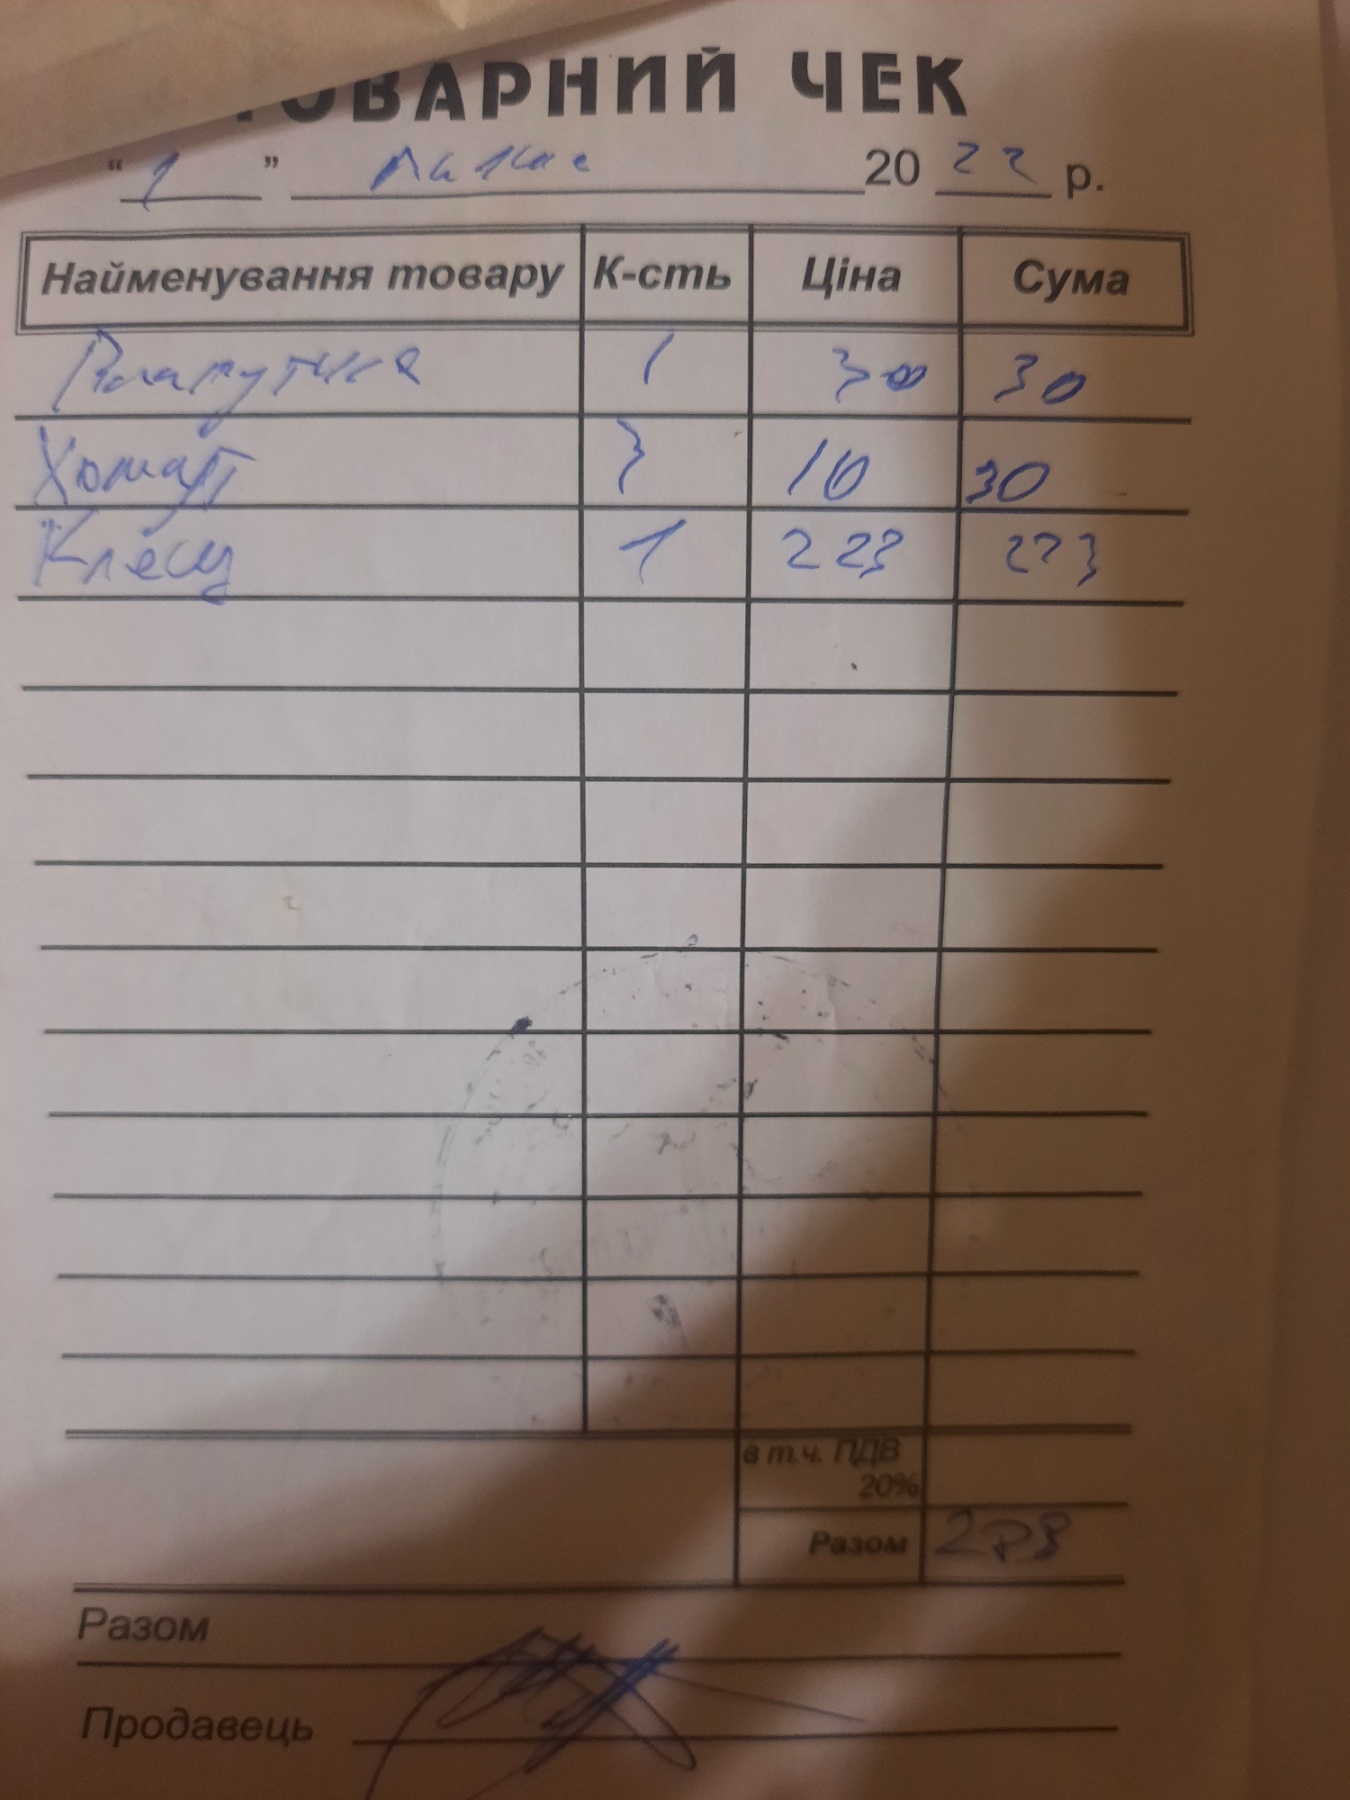 ТОВАРНИЙ ЧЕК
“ 1 ” 20 22 р.
Найменування товару К-сть Ціна Сума
1 30 30
Хомут 3 10 30
1 223 223
в т.ч. ПДВ
20%
Разом 283
Разом
Продавець